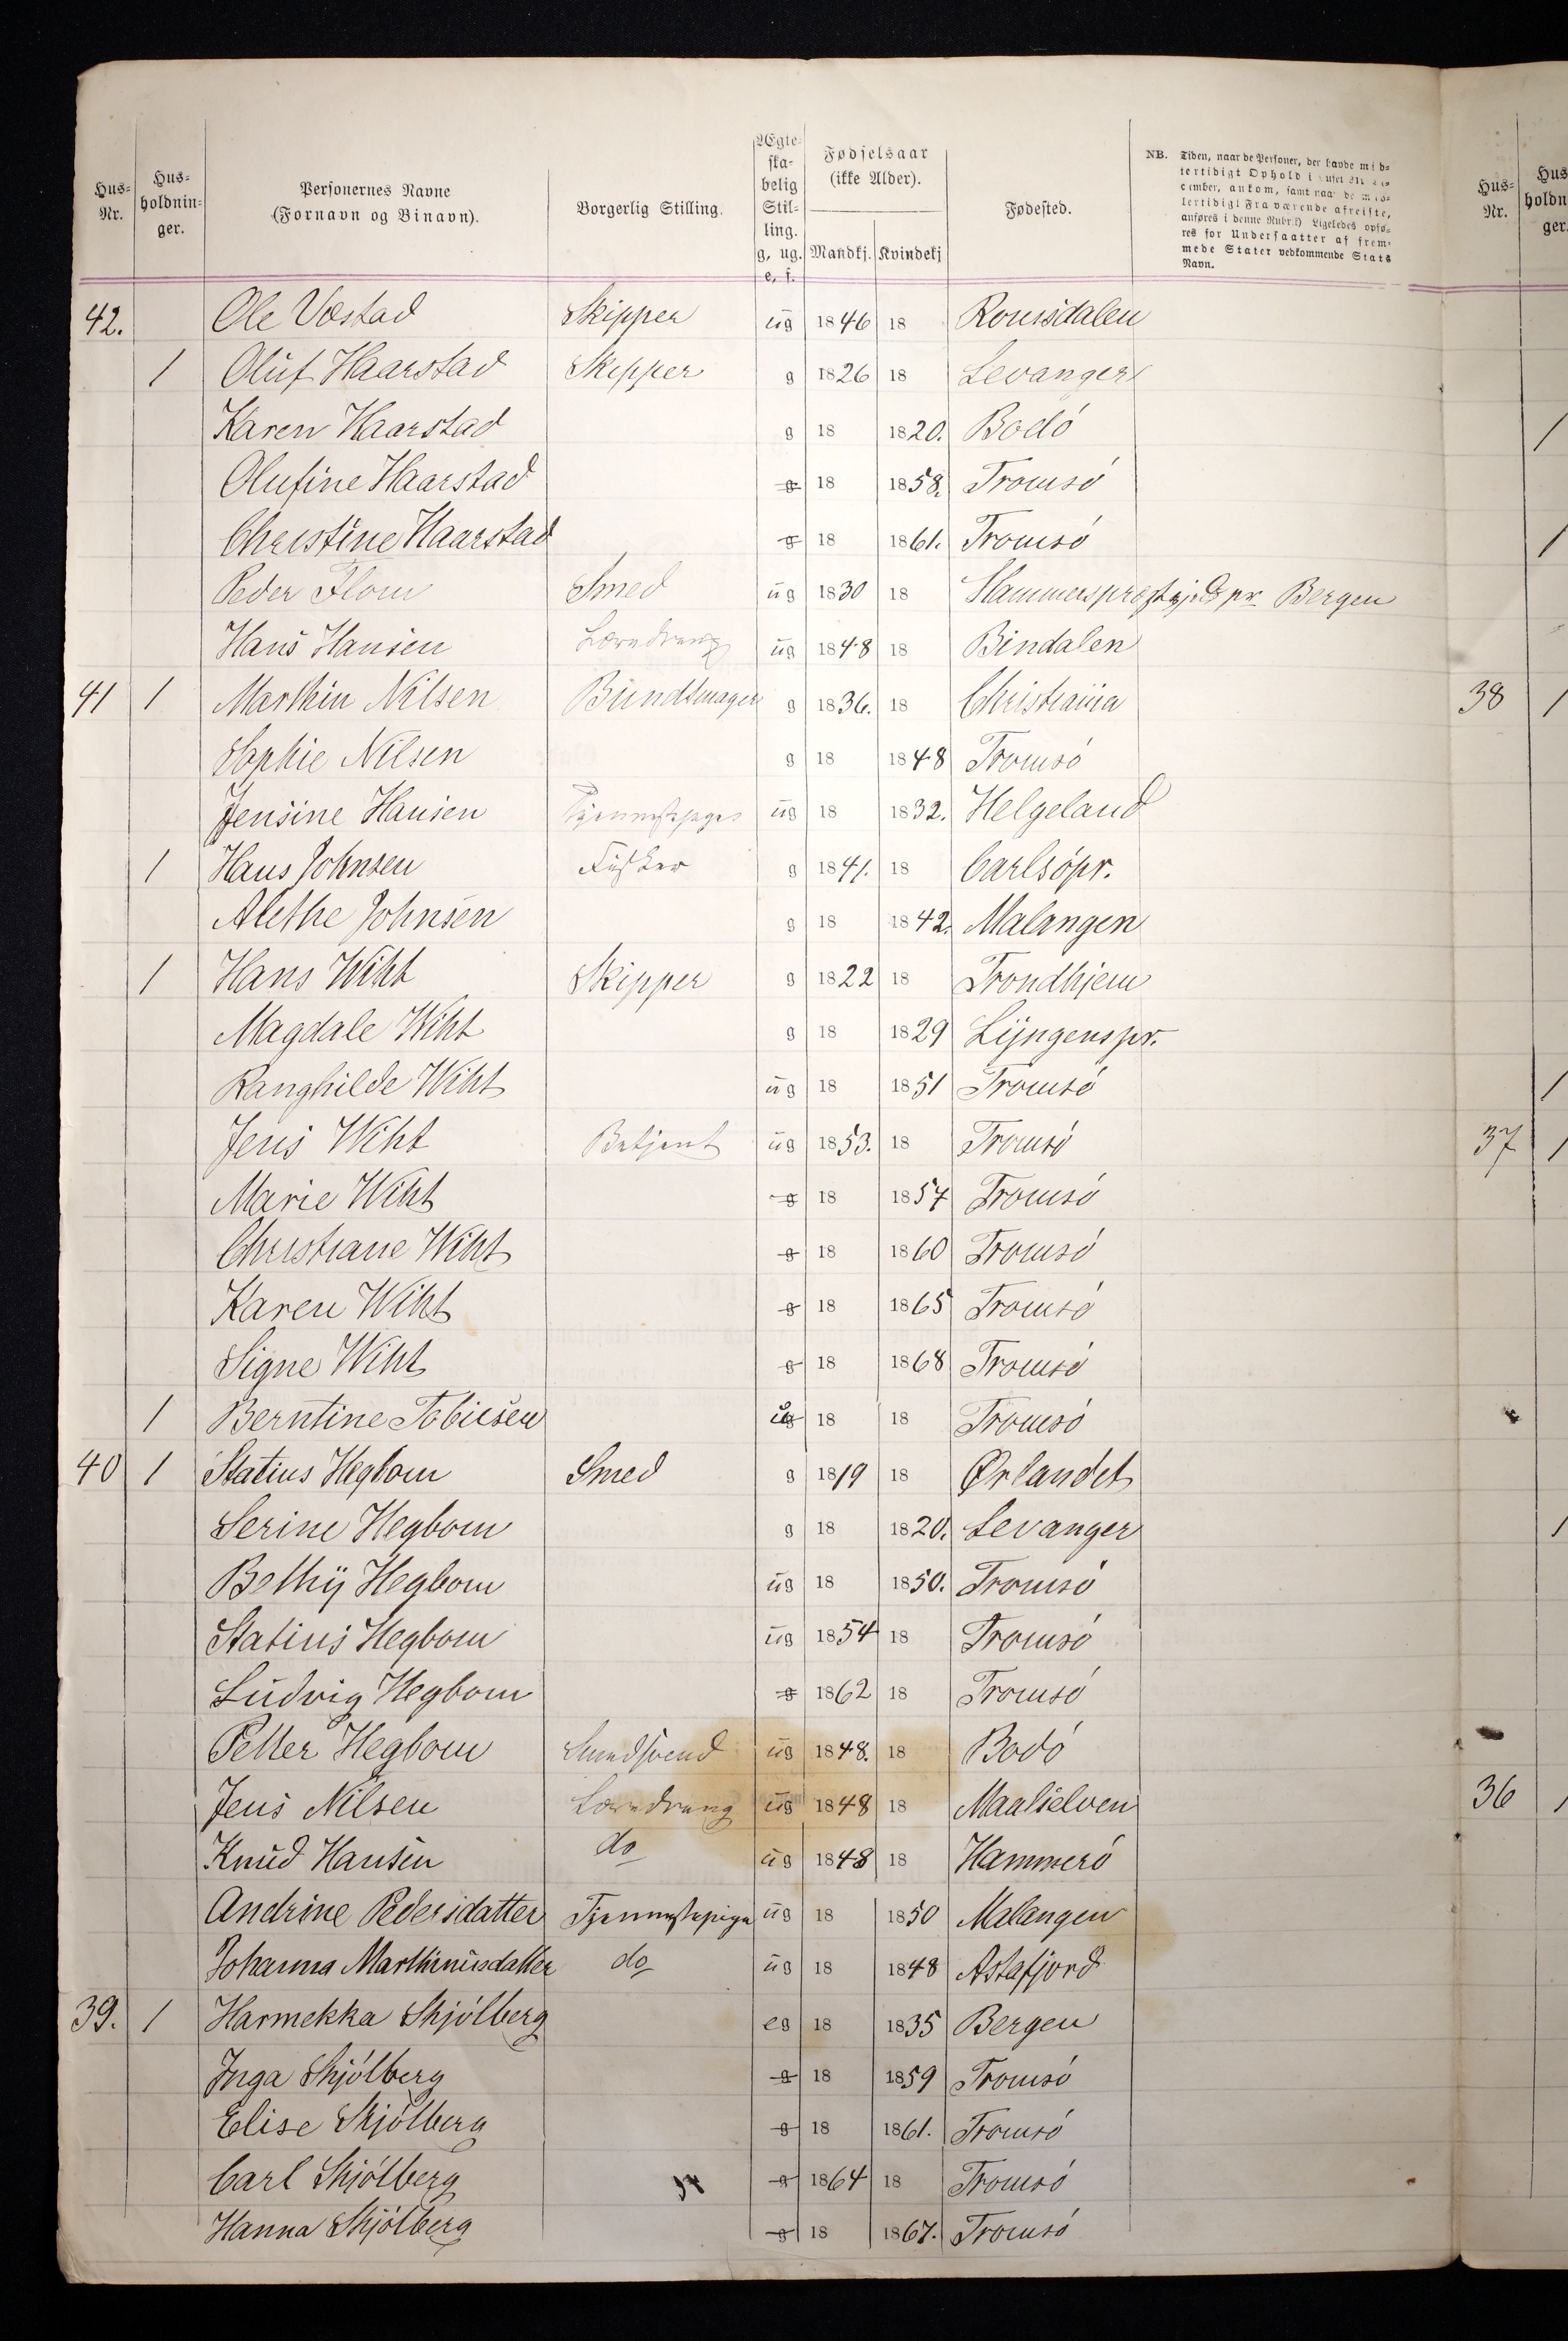 Hus-Nr. Hus-holdnin-ger. Personernes Navne (Fornavn og Binavn). Borgerlig Stilling. Ægte-ska-belig Stil-ling. g, ug. e, f. Fødselsaar (ikke Alder). Mandkj. Kvindekj Fødested. NB. Tiden, naar de Personer, der havde mid-
lertidigt Ophold i
cember, ankom, samt naar de mid-
lertidigt Fraværende afreiste,
anføres i denne Rubrik) Ligeledes opfø-
res for Undersaatter af frem-
mede Stater vedkommende Stats
Navn.
42. Ole Væstad Skipper ug 1846 18 Romsdalen
1 Oluf Haarstad Skipper g 1826 18 Levanger
Karen Haarstad g 18 1820. Bodó
Olufine Haarstad g 18 1858. Tromsó
Christine Haarstad g 18 1861. Tromsó
Peder Flom Smed ug 1830 18 Hammerspræstegjeld pr Bergen
Hans Hansen Læredreng ug 1848 18 Bindalen
41 1 Marthin Nilsen Bundtmager g 1836. 18 Christiania
Sophie Nilsen g 18 1848 Tromsó
Jensine Hansen Tjenestepige ug 18 1832. Helgeland
1 Hans Johnsen Fisker g 1841. 18 Carlsöpr.
Alethe Johnsen g 18 1842. Malangen
1 Hans Wiht Skipper g 1822 18 Trondhjem
Magdale Wiht g 18 1829 Lyngenspr.
Ranghilde Wiht ug 18 1851 Tromsó
Jens Wiht Betjent ug 1853. 18 Tromsó
Marie Wiht g 18 1857 Tromsó
Christiane Wiht g 18 1860 Tromsó
Karen Wiht g 18 1865 Tromsó
Signe Wiht g 18 1868 Tromsó
1 Berntine Tobiesen 18 18 Tromsó
40 1 Statius Hegbom Smed g 1819 18 Ørlandet
Serine Hegbom g 18 1820. Levanger
Bethy Hegbom ug 18 1850. Tromsó
Statius Hegbom ug 1854 18 Tromsó
Ludvig Hegbom g 1862 18 Tromsó
Petter Hegbom Smedsvend ug 1848. 18 Bodó
Jens Nilsen Læredreng ug 1848 18 Maalselven
Knud Hansen do ug 1848 18 Hammeró
Andrine Pedersdatter Tjenestepige ug 18 1850 Malangen
Johanna Marthinusdatter do ug 18 1848 Astafjord
39. 1 Harmekka Skjólberg eg 18 1835 Bergen
Inga Skjólberg g 18 1859 Tromsó
Elise Skjólberg g 18 1861. Tromsó
Carl Skjólberg g 1864 18 Tromsó
Hanna Skjólberg g 18 1867. Tromsó
Hus-Nr. Hus holdn ger.
1
1
38 1
1
37 1
1
36 1